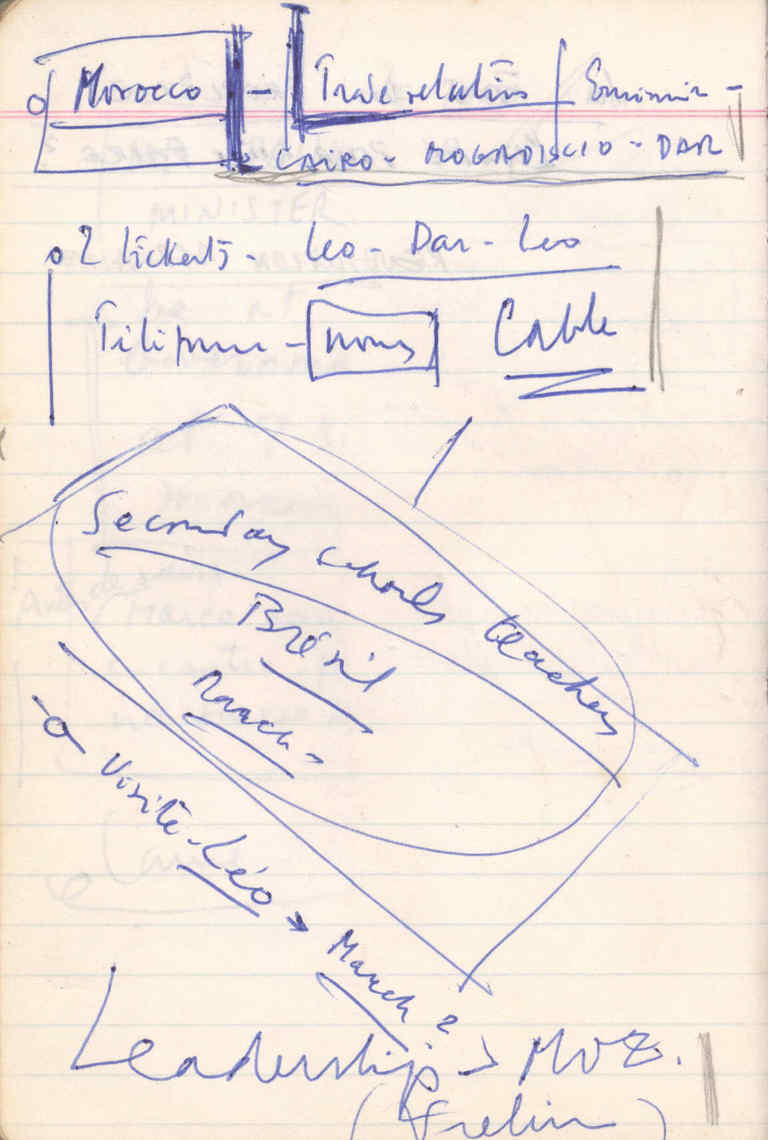 Morocco - Trade relations / Economic -
CAIRO - MOGADISCIO - DAR
2 tickets - Leo - Dar - Leo
- noms Cable
Secondary schools teachers
Brésil
March -
Visite - Léo → March 2
Leadership > MOZ.
(Frelim)